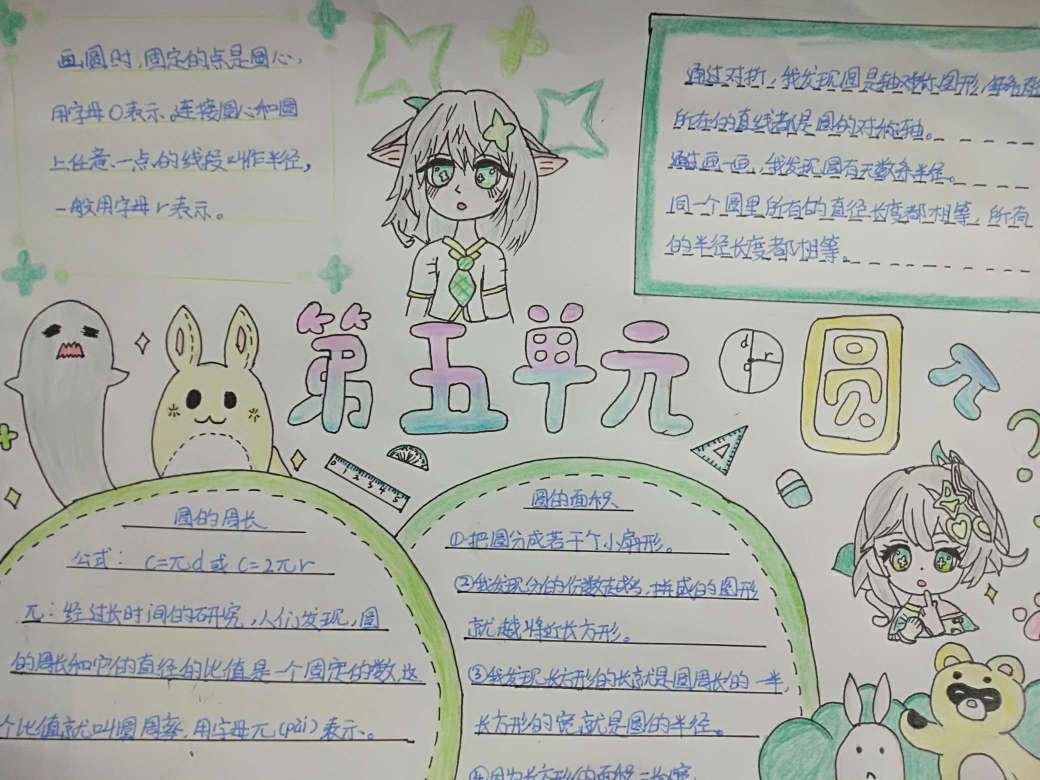 画圆时,固定的点是圆心,
用字母O表示。连接圆心和圆
上任意一点的线段叫作半径,
一般用字母r表示。
通过对折,我发现圆是轴对称图形,每条直
所在的直线都是圆的对称轴。
通过画一画,我发现圆有无数条半径。
同一个圆里所有的直径长度都相等,所有
的半径长度都相等。
第五单元
d r
圆
π
0 1 2 3 4 5
圆的周长
公式: C=πd或C=2πr
π:经过长时间的研究,人们发现,圆
的周长和它的直径的比值是一个固定的数,这
个比值就叫圆周率,用字母π(pài)表示。
圆的面积
①把圆分成若干个小扇形。
②我发现分的份数越多,拼成的图形
就越接近长方形。
③我发现长方形的长就是圆周长的一半,
长方形的宽就是圆的半径。
④因为长方形的面积=长×宽